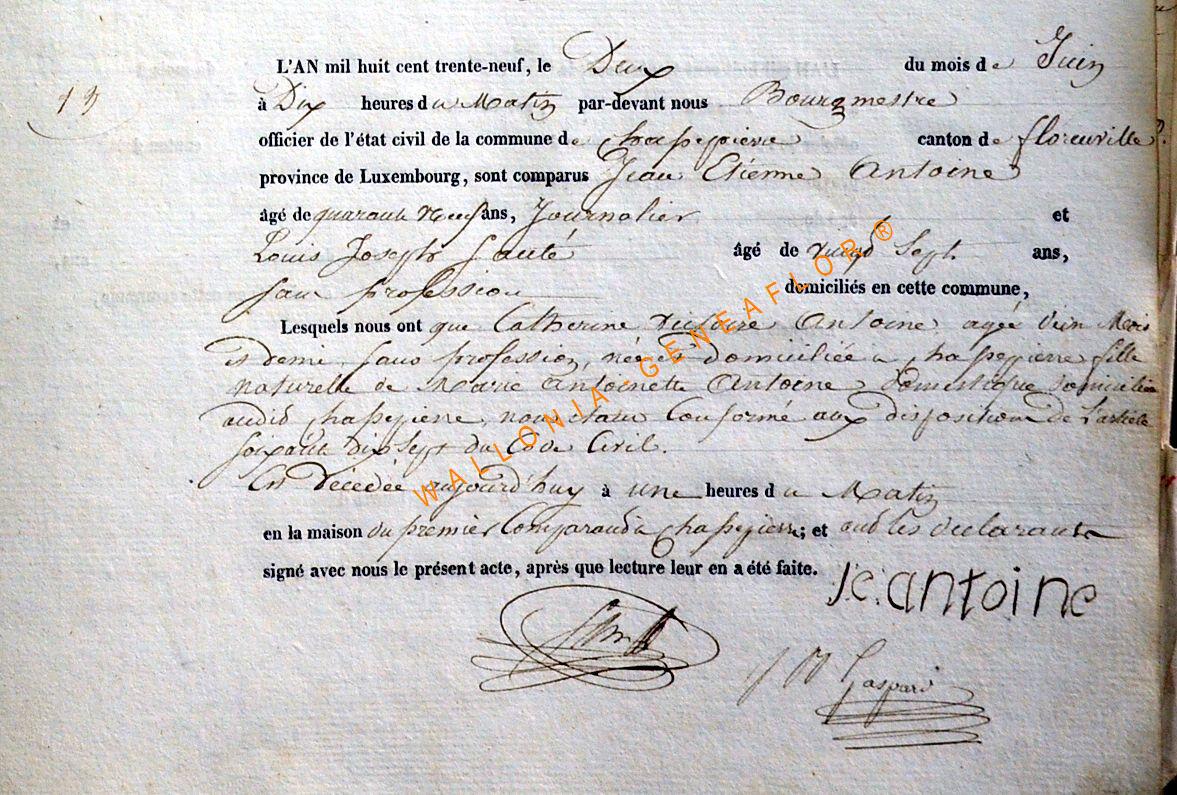 L'AN mil huit cent trente-neuf, le Deux du mois de Juin
13
à Dix heures du Matin par-devant nous Bourgmestre
officier de l'état civil de la commune de chassepierre canton de florenville
province de Luxembourg, sont comparus Jean Etienne Antoine
âgé de quarante neuf ans, Journalier et
Louis Joseph âgé de vingt Sept ans,
sans profession domiciliés en cette commune,
Lesquels nous ont que Catherine Victoire Antoine agée Mois
et demi sans profession, née et domiciliée a chassepierre fille
naturelle de Marie Antoinette Antoine domestique domiciliée
audit chassepierre, nous étant Conformé aux dispositions de L'article
soixante Dix Sept du Code Civil.
Est Décédée aujourd'huy à une heures du Matin
en la maison du premier Comparant a chassepierre; et ont les déclarants
signé avec nous le présent acte, après que lecture leur en a été faite.
J.e. antoine
Gaspard
WALLONIA-GENEAFLOR®